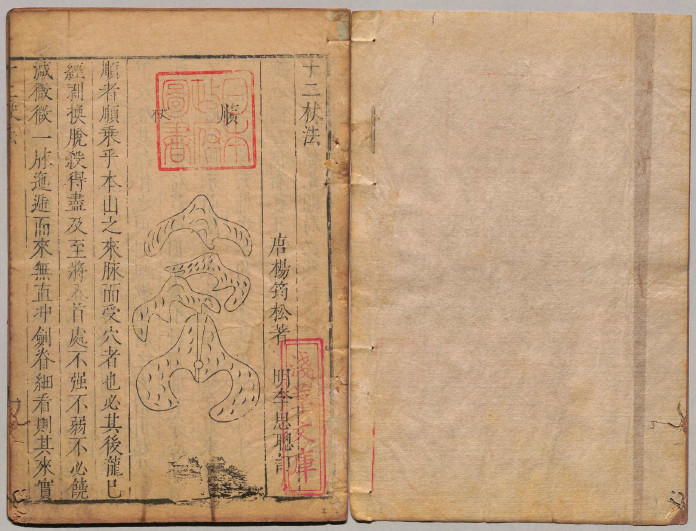 十二杖法
唐楊筠松著 明李思聰訂
順杖
順者順乘乎本山之來脉而受穴者也必其後龍已
經剥換脫殺得盡及至將入首處不强不弱不必饒
減微微一脉迤邐而來無直冲劍脊細看則其來實
十二杖法
日本
政府
圖書
淺草文庫